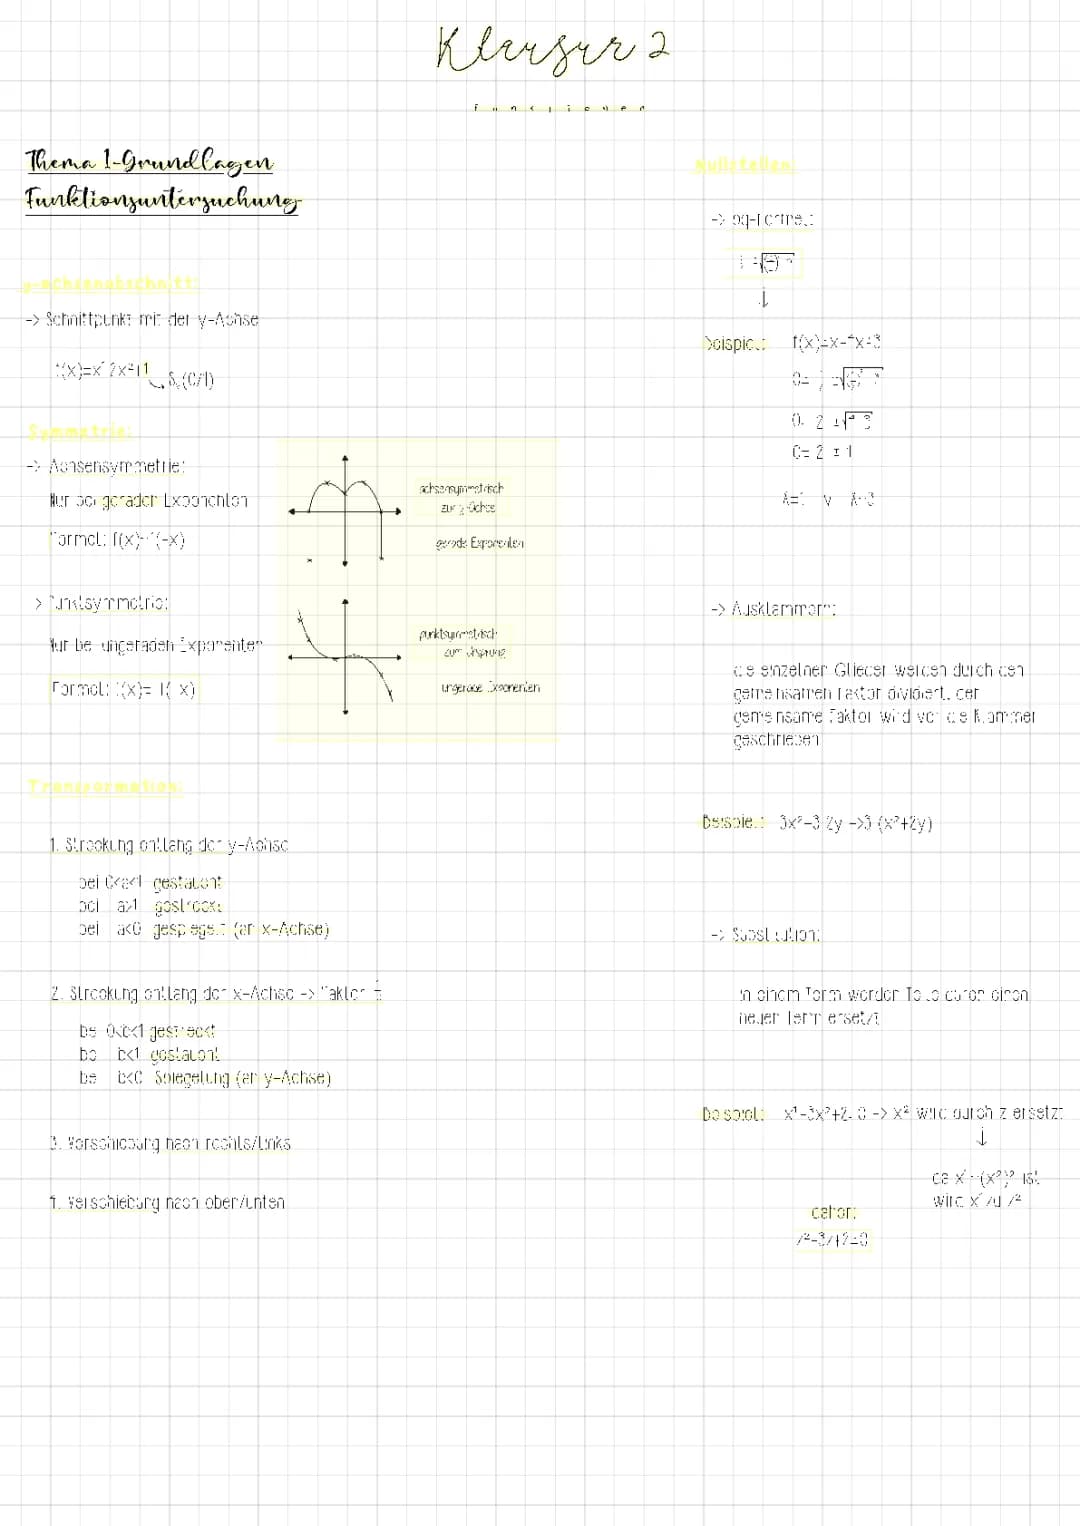 Klausur 2
Funktionen
Thema 1-Grundlagen
Funktionsuntersuchung
y-achsenabschnitt:
-> Schnittpunkt mit der y-Achse
Symmetrie:
-> Achsensymmetrie:
Nur bei geraden Exponenten
Formel: f(x)=f(-x)
achsensymmetrisch
zur y-Achse
gerade Exponenten
-> Punktsymmetrie:
Nur bei ungeraden Exponenten
Formel:
punktsymmetrisch
zum Ursprung
ungerade Exponenten
Transformation:
1. Streckung entlang der y-Achse
bei 0<a<1 gestaucht
bei a>1 gestreckt
bei a<0 gespiegelt (an x-Achse)
2. Streckung entlang der x-Achse -> Faktor
bei 0<b<1 gestreckt
bei b<1 gestaucht
bei b<0 Spiegelung (an y-Achse)
3. Verschiebung nach rechts/links
4. Verschiebung nach oben/unten
Nullstellen:
-> pq-Formel:
Beispiel:
0= 2 ± 1
-> Ausklammern:
die einzelnen Glieder werden durch den
gemeinsamen Faktor dividiert, der
gemeinsame Faktor wird vor die Klammer
geschrieben
Beispiel: 3x²-3 2y ->3 (x²+2y)
-> Substitution:
in einem Term werden Teile durch einen
neuen Term ersetzt
Beispiel: -> x² wird durch z ersetzt
↓
ist
wird
daher:
z²-3z+2=0